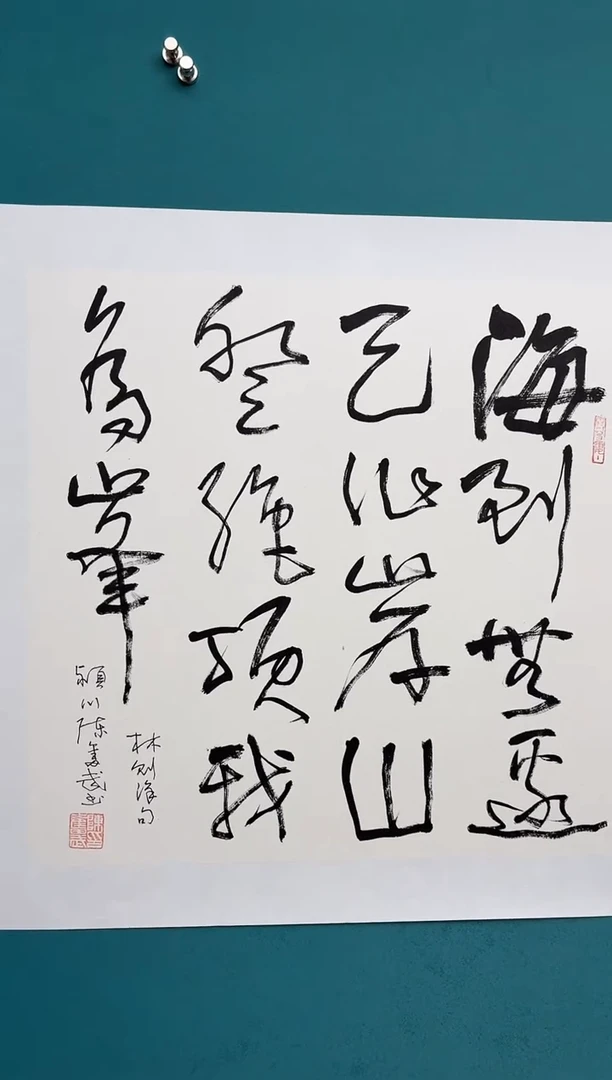 海到無邊
天作岸山
登絕頂我
為峯
林則徐句
潁川陳武書